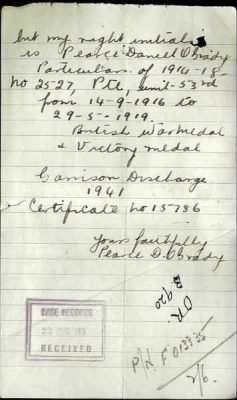 but my right initials
is Pearce Daniel O'Brady
Particulars of 1914-18-
No 2527, Pte, unit-53rd
from 14-9-1916 to
29-5-1919.
British War Medal
& Victory medal
Garrison Discharge
1941
Certificate no 15736
Yours faithfully
Pearce D. O'Brady
BASE RECORDS
RECEIVED
B 920
2/6.